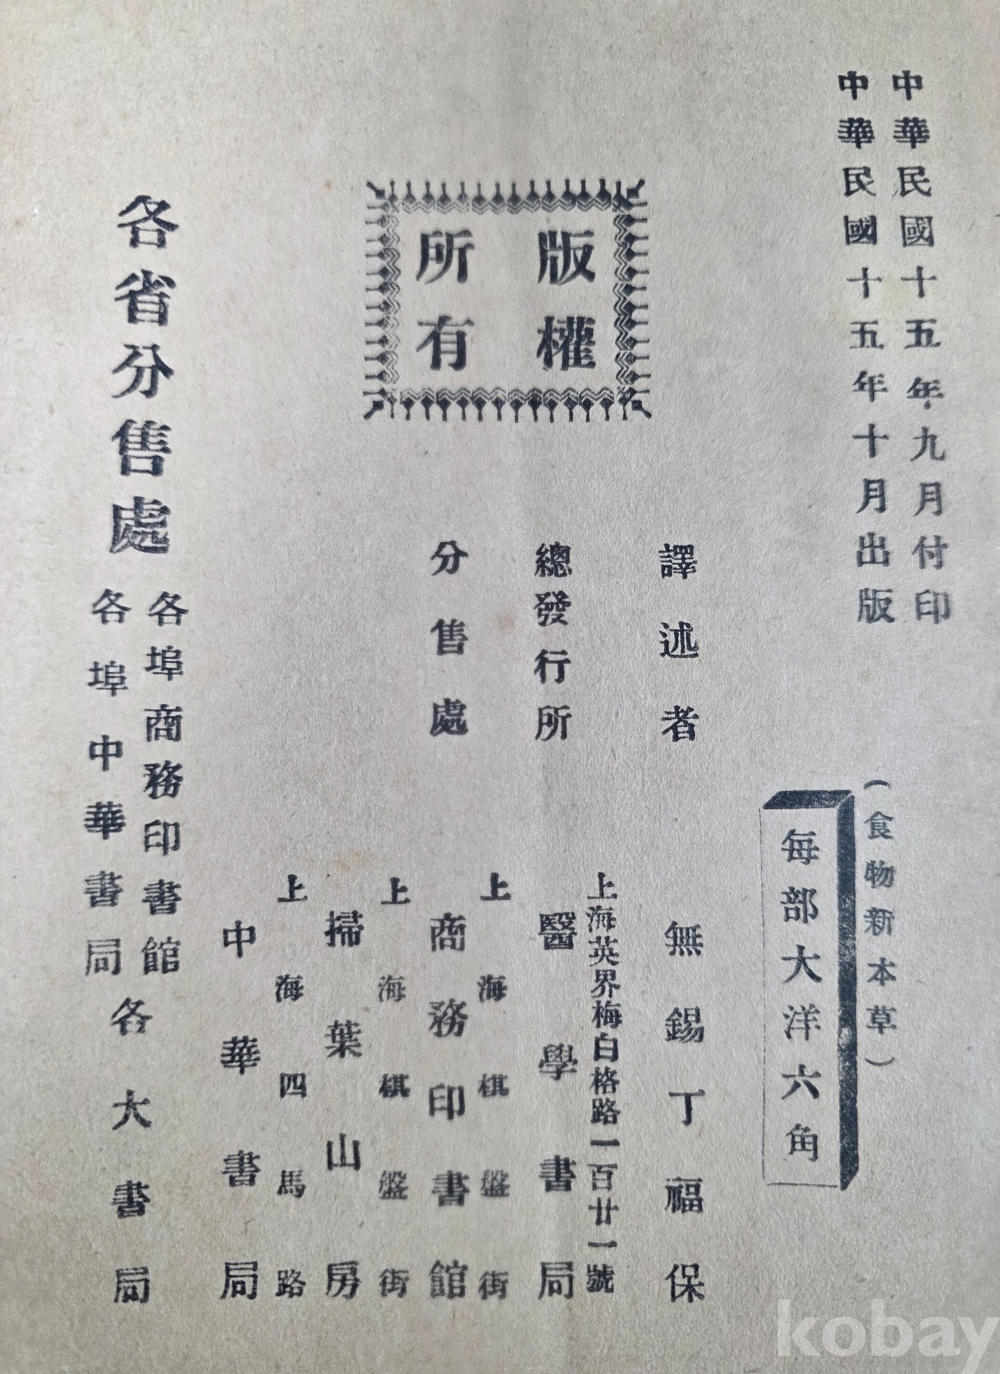 中華民國十五年九月付印
中華民國十五年十月出版
(食物新本草)
每部大洋六角
譯述者
無錫丁福保
總發行所
上海英界梅白格路一百廿一號
醫學書局
版權
所有
分售處
上海棋盤街
商務印書館
上海棋盤街
掃葉山房
上海四馬路
中華書局
各省分售處
各埠商務印書館
各埠中華書局
各大書局
kobay